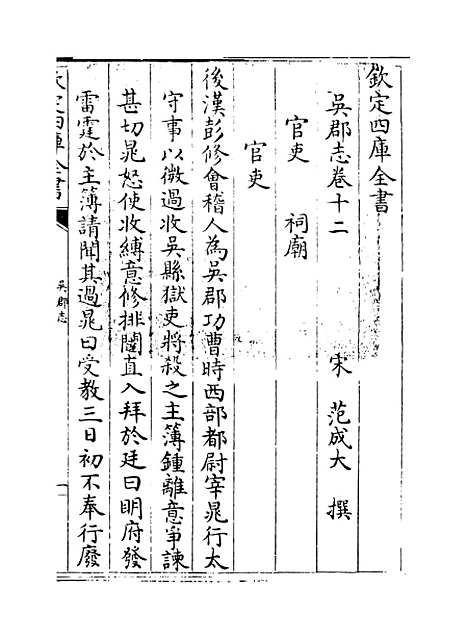 欽定四庫全書
吳郡志卷十二
宋 范成大 撰
官吏 祠廟
官吏
後漢彭修會稽人為吳郡功曹時西部都尉宰晁行太
守事以微過收吳縣獄吏將殺之主簿鍾離意爭諫
甚切晁怒使收縛意修排閤直入拜於廷曰明府發
雷霆於主簿請聞其過晁曰受教三日初不奉行廢
欽定四庫全書
吳郡志
一